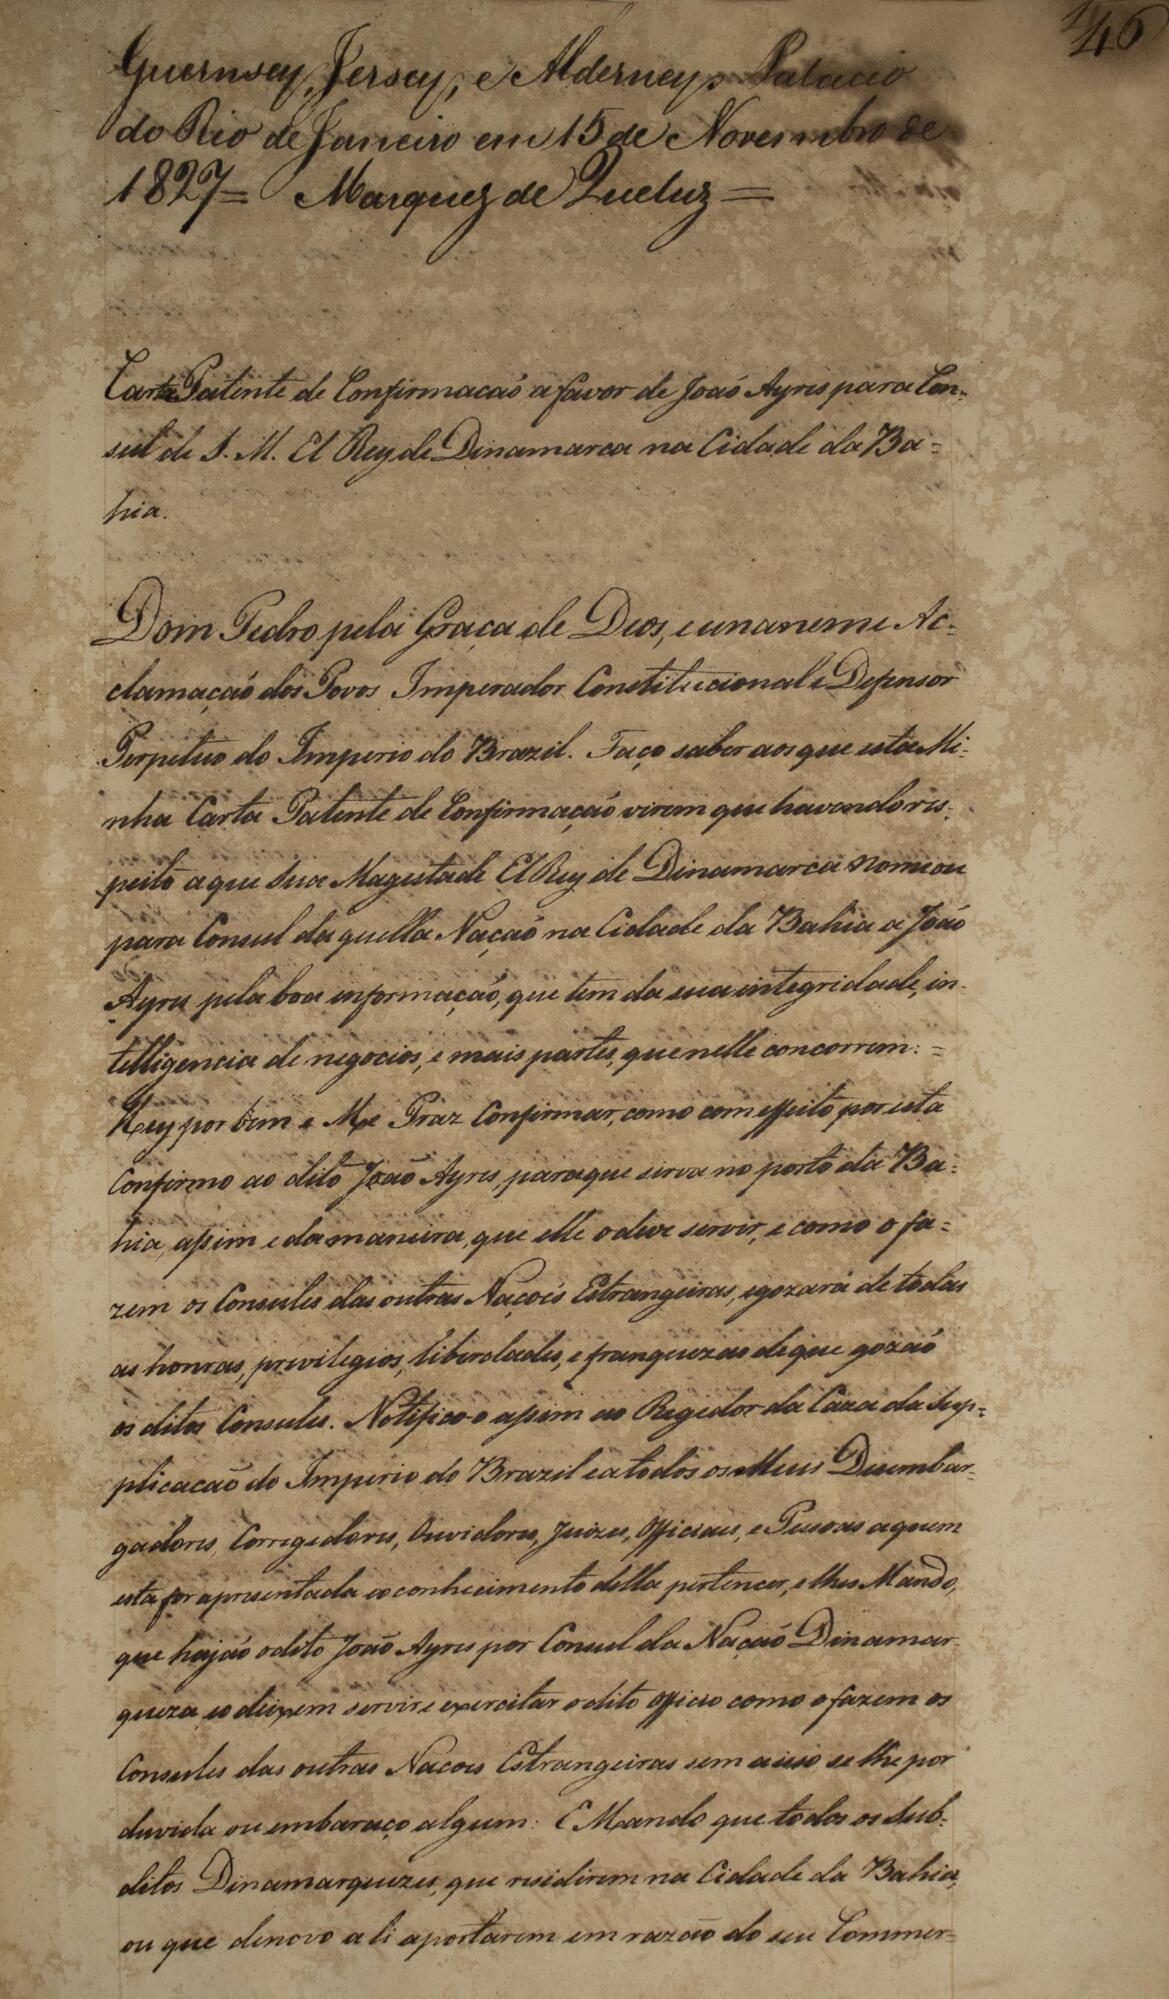 46
Guernsey, Jersey, e Alderney, Palacio
do Rio de Janeiro em 15 de Novembro de
1827= Marquez de Queluz=
Carta Patente de Confirmacaõ a favor de Joaõ Ayres para Con-
sul de S. M. El Rey de Dinamarca na Cidade da Ba=
hia.
Dom Pedro pela Graça de Deos, e unaneme Ac-
clamaçaõ dos Povos Imperador Constitucional e Defensor
Perpetuo do Imperio do Brazil. Faço saber aos que esta Mi-
nha Carta Patente de Confirmaçaõ virem que havendo res-
peito a que Sua Magestade El Rey de Dinamarca nomeou
para Consul daquella Naçaõ na Cidade da Bahia a Joaõ
Ayres pela boa informaçaõ, que tem da sua integridade, in-
telligencia de negocios, e mais partes, que nelle concorrem: =
Hey por bem e Me Praz Confirmar, como com effeito por esta
Confirmo ao dito Joaõ Ayres, para que sirva no porto da Ba=
hia, assim e da maneira, que elle o deve servir, e como o fa=
zem os Consules das outras Naçoẽs Estrangeiras, e gozará de todas
as honras, previlegios, liberdades, e franquezas de que gozaõ
os ditos Consules. Notifico-o assim ao Regedor da Caza da Sup-
plicacaõ do Imperio do Brazil e a todos os Meus Desembar-
gadores, Corregedores, Ouvidores, Juizes, Officiaes, e Pessoas a quem
esta for apresentada e o conhecimento della pertencer, e lhes Mando,
que hajaõ o dito Joaõ Ayres por Consul da Naçaõ Dinamar-
queza e o deixem servir e exercitar o dito officio como o fazem os
Consules das outras Nacoes Estrangeiras sem a isso se lhe por
duvida ou embaraço algum: E Mando que todos os Sub-
ditos Dinamarquezes, que residirem na Cidade da Bahia,
ou que denovo ali aportarem em razaõ do seu Commer=